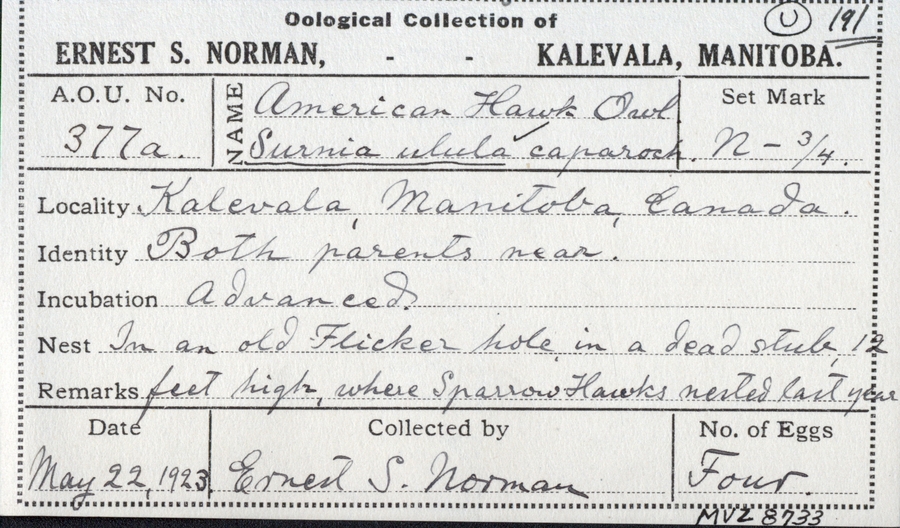 Oological Collection of
U 191
ERNEST S. NORMAN, - - KALEVALA, MANITOBA.
A.O.U. No. 377a.
NAME American Hawk Owl
Surnia ulula caparoch.
Set Mark N - 3/4.
Locality Kalevala, Manitoba, Canada.
Identity Both parents near.
Incubation Advanced.
Nest In an old Flicker hole, in a dead stub, 12
Remarks feet high, where Sparrow Hawks nested last year
Date Collected by No. of Eggs
May 22, 1923 Ernest S. Norman Four.
MVZ 8733